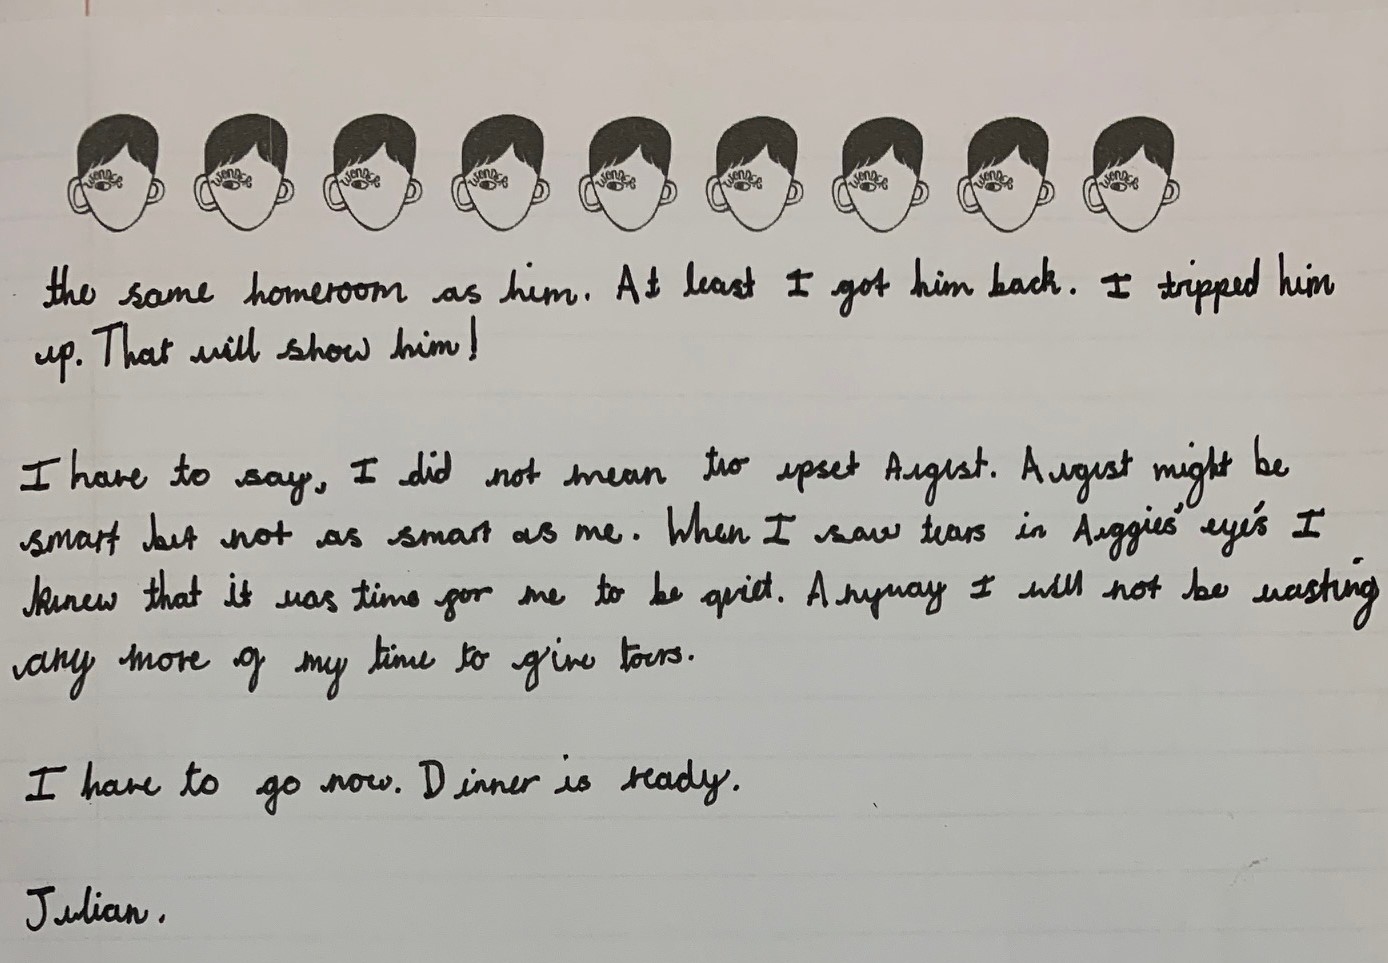 WONDER WONDER WONDER WONDER WONDER WONDER WONDER WONDER WONDER
the same homeroom as him. At least I got him back. I tripped him
up. That will show him!
I have to say, I did not mean two upset August. August might be
smart but not as smart as me. When I saw tears in Auggies' eye's I
knew that it was time for me to be quiet. Anyway I will not be wasting
any more of my time to give tours.
I have to go now. Dinner is ready.
Julian.